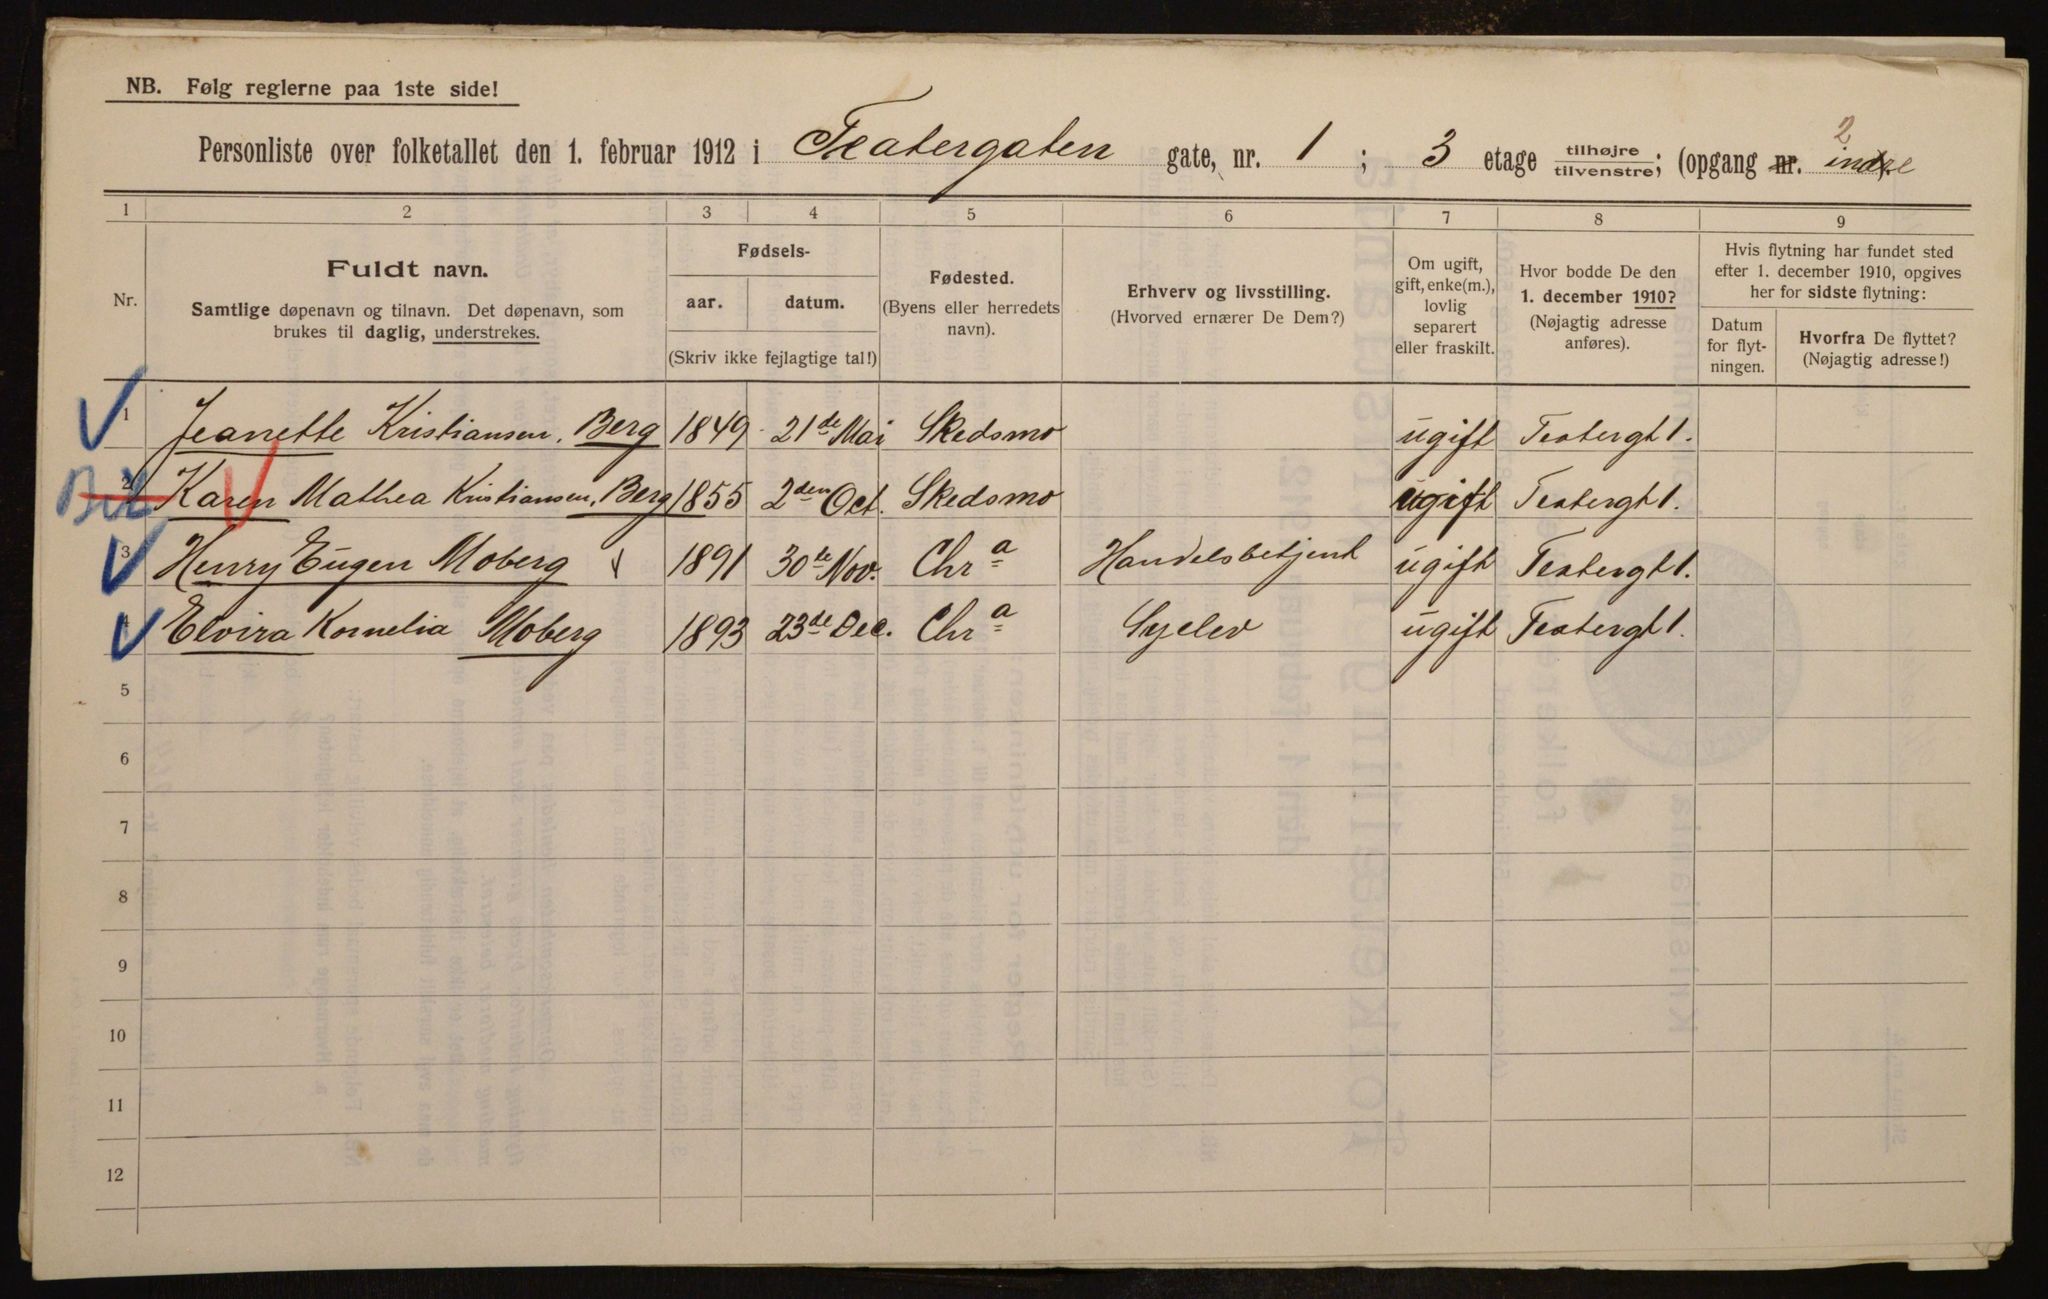 NB. Følg reglerne paa 1ste side!
Personliste over folketallet den 1. februar 1912 i Teatergaten gate, nr. 1 ; 3 etage tilhøjre / tilvenstre; (opgang nr. 2 indre
1 2 3 4 5 6 7 8 9
Nr.
Fuldt navn.
Samtlige døpenavn og tilnavn. Det døpenavn, som
brukes til daglig, understrekes.
Fødsels-
aar. datum.
(Skriv ikke fejlagtige tal!)
Fødested.
(Byens eller herredets
navn).
Erhverv og livsstilling.
(Hvorved ernærer De Dem?)
Om ugift,
gift, enke(m.),
lovlig
separert
eller fraskilt.
Hvor bodde De den
1. december 1910?
(Nøjagtig adresse
anføres).
Hvis flytning har fundet sted
efter 1. december 1910, opgives
her for sidste flytning:
Datum
for flyt-
ningen.
Hvorfra De flyttet?
(Nøjagtig adresse!)
1 Jeanette Kristiansen, Berg 1849 21de Mai Skedsmo ugift Teatergt 1.
2 Karen Mathea Kristiansen, Berg 1855 2den Oct. Skedsmo ugift Teatergt 1.
3 Henry Eugen Moberg 1891 30te Nov. Chr a Handelsbetjent ugift Teatergt 1.
4 Elvira Kornelia Moberg 1893 23de Dec. Chr a Syelev ugift Teatergt 1.
5
6
7
8
9
10
11
12